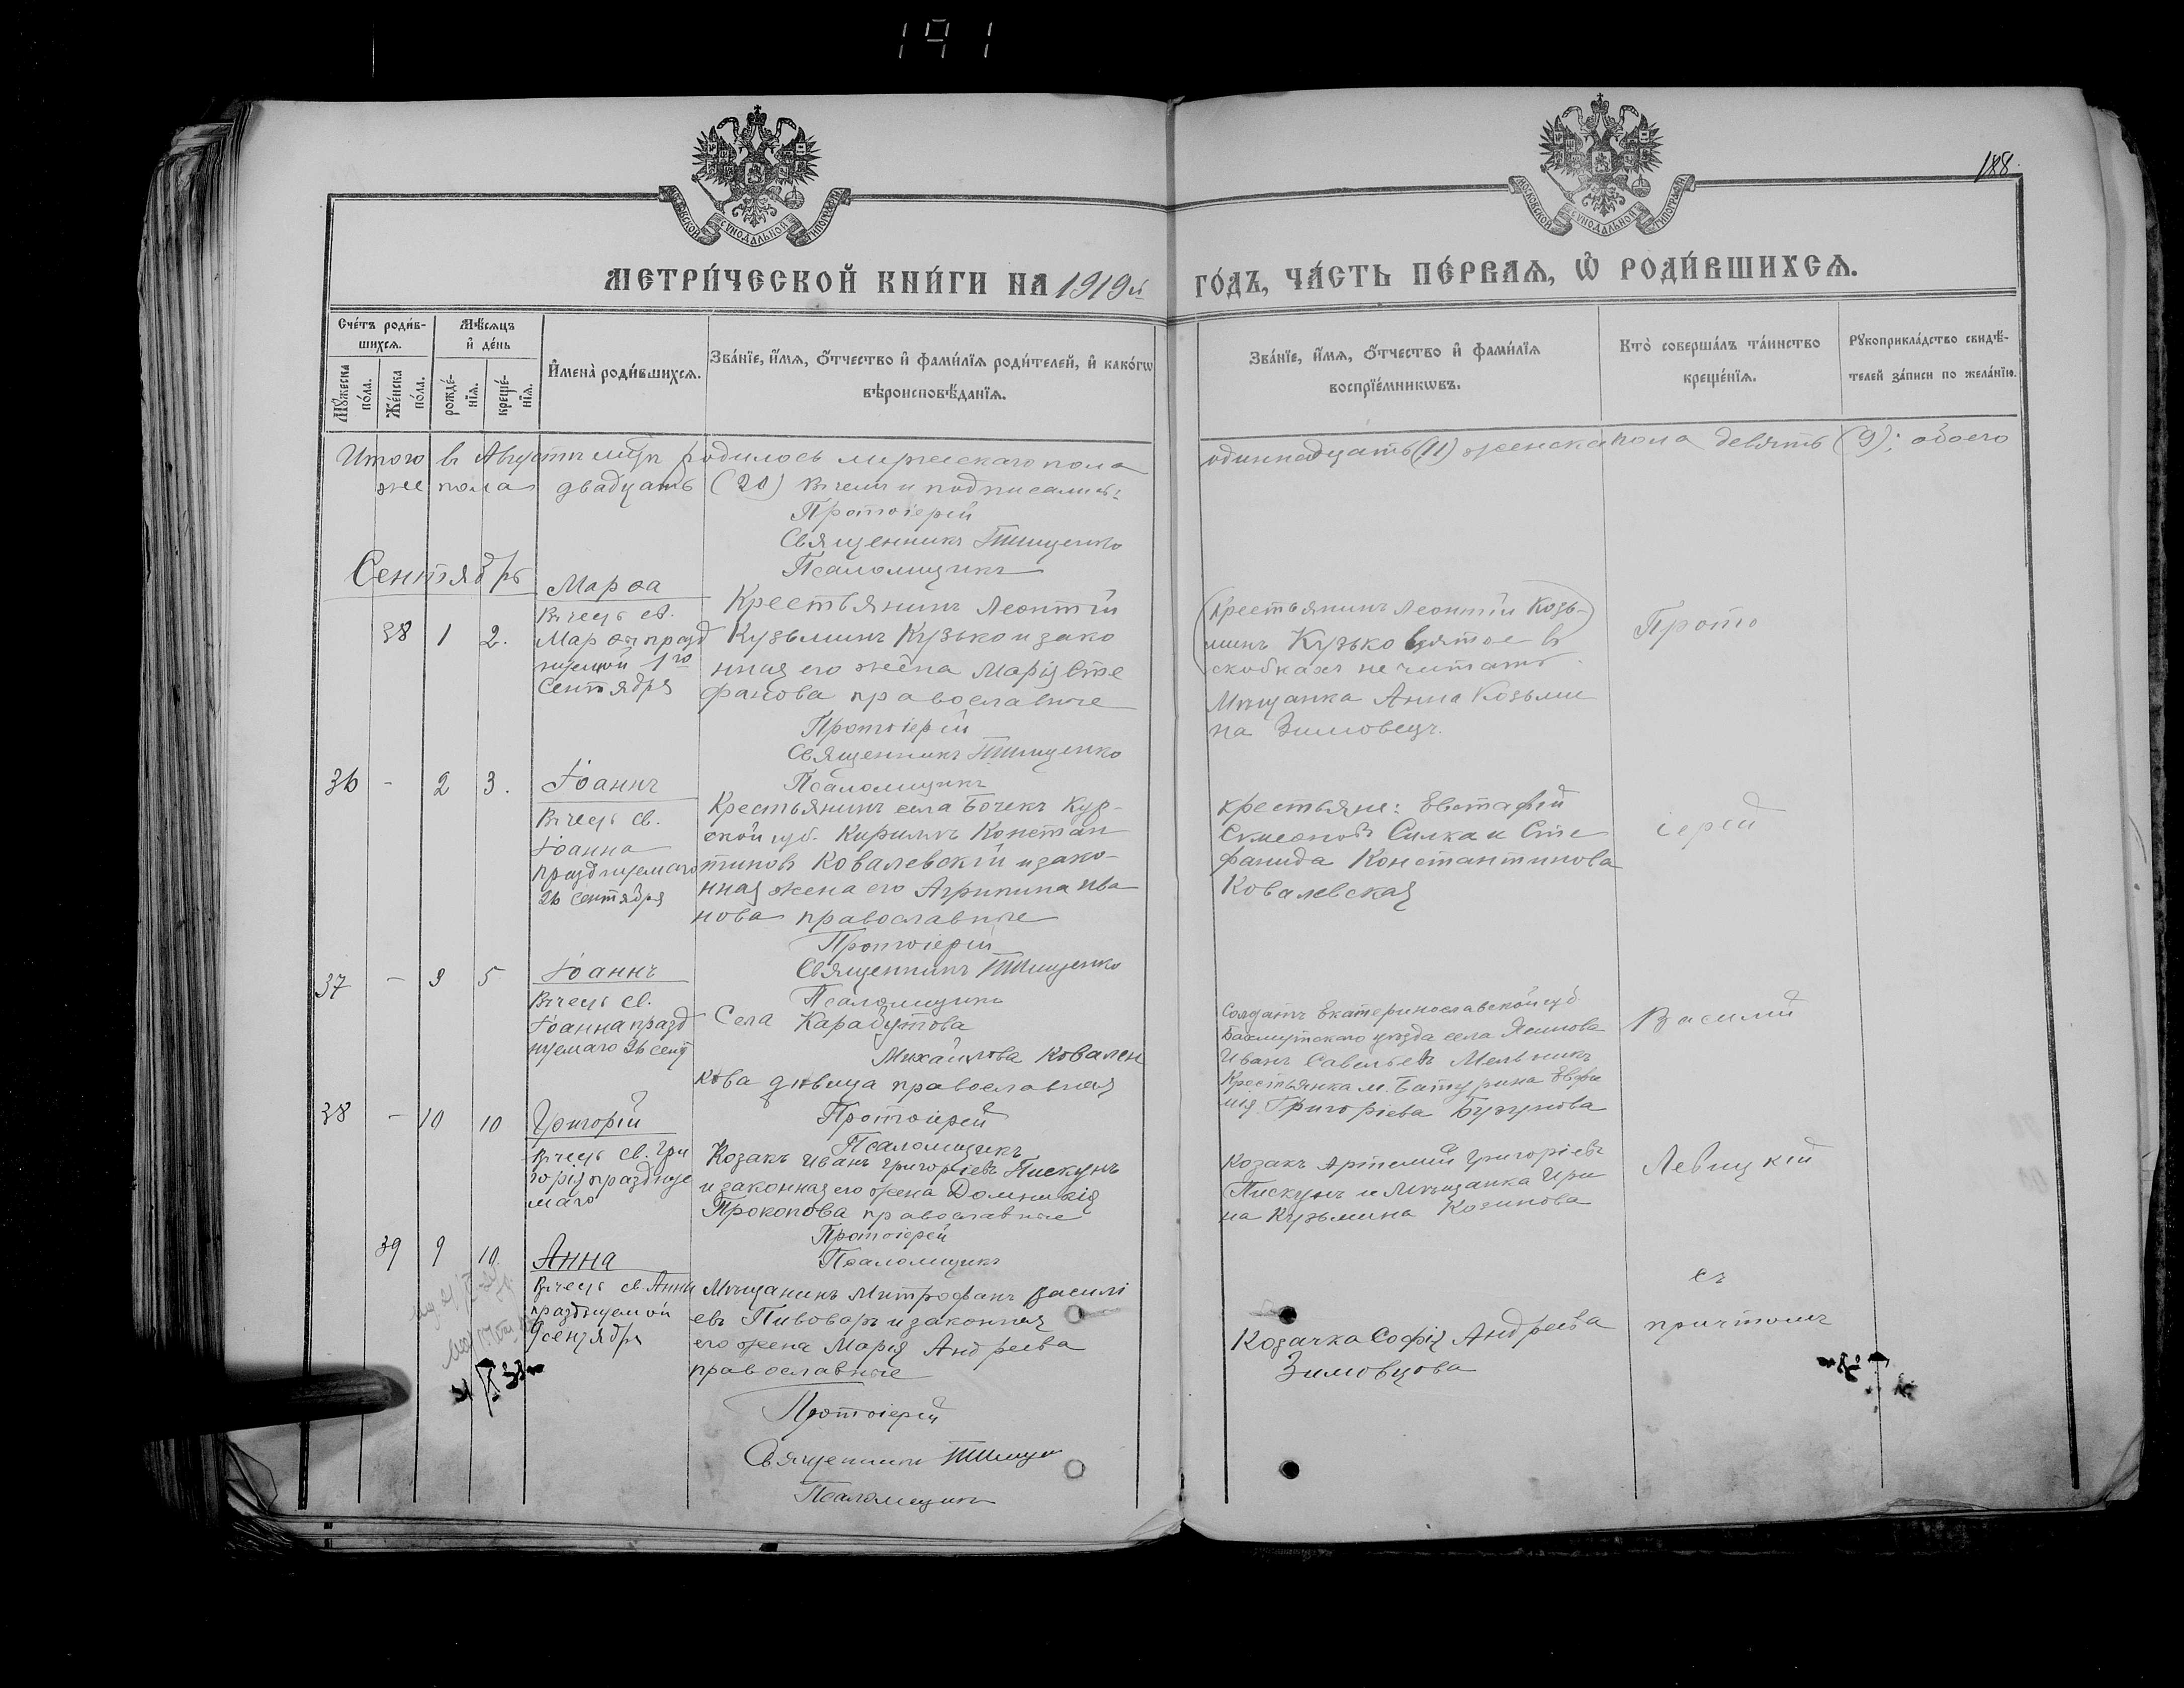 191
188
МОСКОВСКОЙ СѴНОДАЛЬНОЙ ТИПОГРАФІИ
МОСКОВСКОЙ СѴНОДАЛЬНОЙ ТИПОГРАФІИ
МЕТРИ́ЧЕСКОЙ КНИ́ГИ НА 1919й ГО́ДЪ, ЧА́СТЬ ПЕ́РВАЯ, Ѡ РОДИ́ВШИХСЯ.
Сче́тъ роди́в-
шихся.
Мѣ́сяцъ
и де́нь
Му́жеска
по́ла.
Же́нска
по́ла.
рожде́-
нїя.
креще́-
нїя.
Имена̀ роди́вшихся.
Зва́нїе, и́мя, о́тчество и фами́лїя роди́телей, и како́гѡ
вѣроисповѣ́данїя.
Зва́нїе, и́мя, о́тчество и фами́лїя
воспрїе́мникѡвъ.
Кто̀ соверша́лъ та́инство
креще́нїя.
Рукоприкла́дство свидѣ́-
телей за́писи по жела́нїю.
Итого въ Августѣ м-цѣ родилось мужескаго пола одиннадцать (11) женска пола девять (9); обоего
же пола двадцать (20) Въ чемъ и подписались:
Протоіерей
Священникъ Тищенко
Псаломщикъ
Сентябрь
38 1 2.
Марѳа
Въ честь св.
Марѳы празд
нуемой 1го
Сентября
Крестьянинъ Леонтій
Кузьминъ Кузько и зако
нная его жена Марія Сте
фанова православные
Протоіерей
Священникъ Тищенко
Псаломщикъ
(Крестьянинъ Леонтій Козь-
минъ Кузько) взятое въ
скобкахъ не читать.
Мѣщанка Анна Козьми
на Зимовецъ.
36 - 2 3.
Іоаннъ
Въ честь св.
Іоанна
празднуемаго
26 Сентября
Крестьянинъ села Бочекъ Кур-
ской губ. Кириллъ Констан
тиновъ Ковалевскій и зако-
нная жена его Агрипина Ива
нова православные
Протоіерей
Священникъ Тищенко
Псаломщикъ
крестьяне: Евстафій
Сѵмеоновъ Силка и Сте
фанида Константинова
Ковалевская
37 - 3 5
Іоаннъ
Въ честь св.
Іоанна празд
нуемаго 26 сент
Села Карабутова
Михайлова Ковален
кова дѣвица православная
Протоіерей
Псаломщикъ
Солдатъ Екатеринославской губ.
Бахмутскаго уѣзда села Ясинова
Иванъ Савельевъ Мельникъ
Крестьянка м. Батурина Евфи
мія Григоріева Бузунова
38 - 10 10
Григорій
Въ честь св. Гри
горія празднуе
маго
Козакъ Иванъ Григоріевъ Пискунъ
и законная его жена Домникія
Прокопова православные
Протоіерей
Псаломщикъ
Козакъ Артемій Григоріевъ
Пискунъ и Мѣщанка Ири
на Кузьмина Козинова
39 9 10
Анна
Въ честь св. Анны
празднуемой
9 сентября
Мѣщанинъ Митрофанъ Василі
евъ Пивоваръ и законная
его жена Марія Андреева
православные
Протоіерей
Священникъ Тищен
Псаломщикъ
Козачка Софія Андреева
Зимовцова
Прото
іерей
Василій
Левицкій
съ
причтомъ